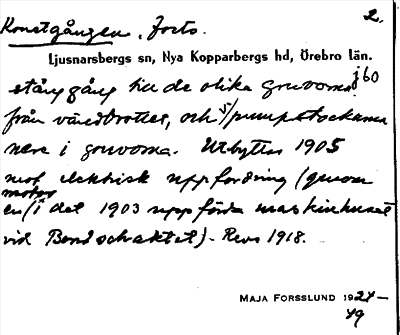 Konstgången, forts. 2.
Ljusnarsbergs sn, Nya Kopparbergs hd, Örebro län.
stånggång till de olika gruvorna
från vändbrottet, och t/pumpstockarna
nere i gruvorna. Utbyttes 1905
mot elektrisk uppfordring (genom
motor
en/i det 1903 uppförda maskinhuset
vid Bondschaktet). Revs 1918.
MAJA FORSSLUND 1924-
49